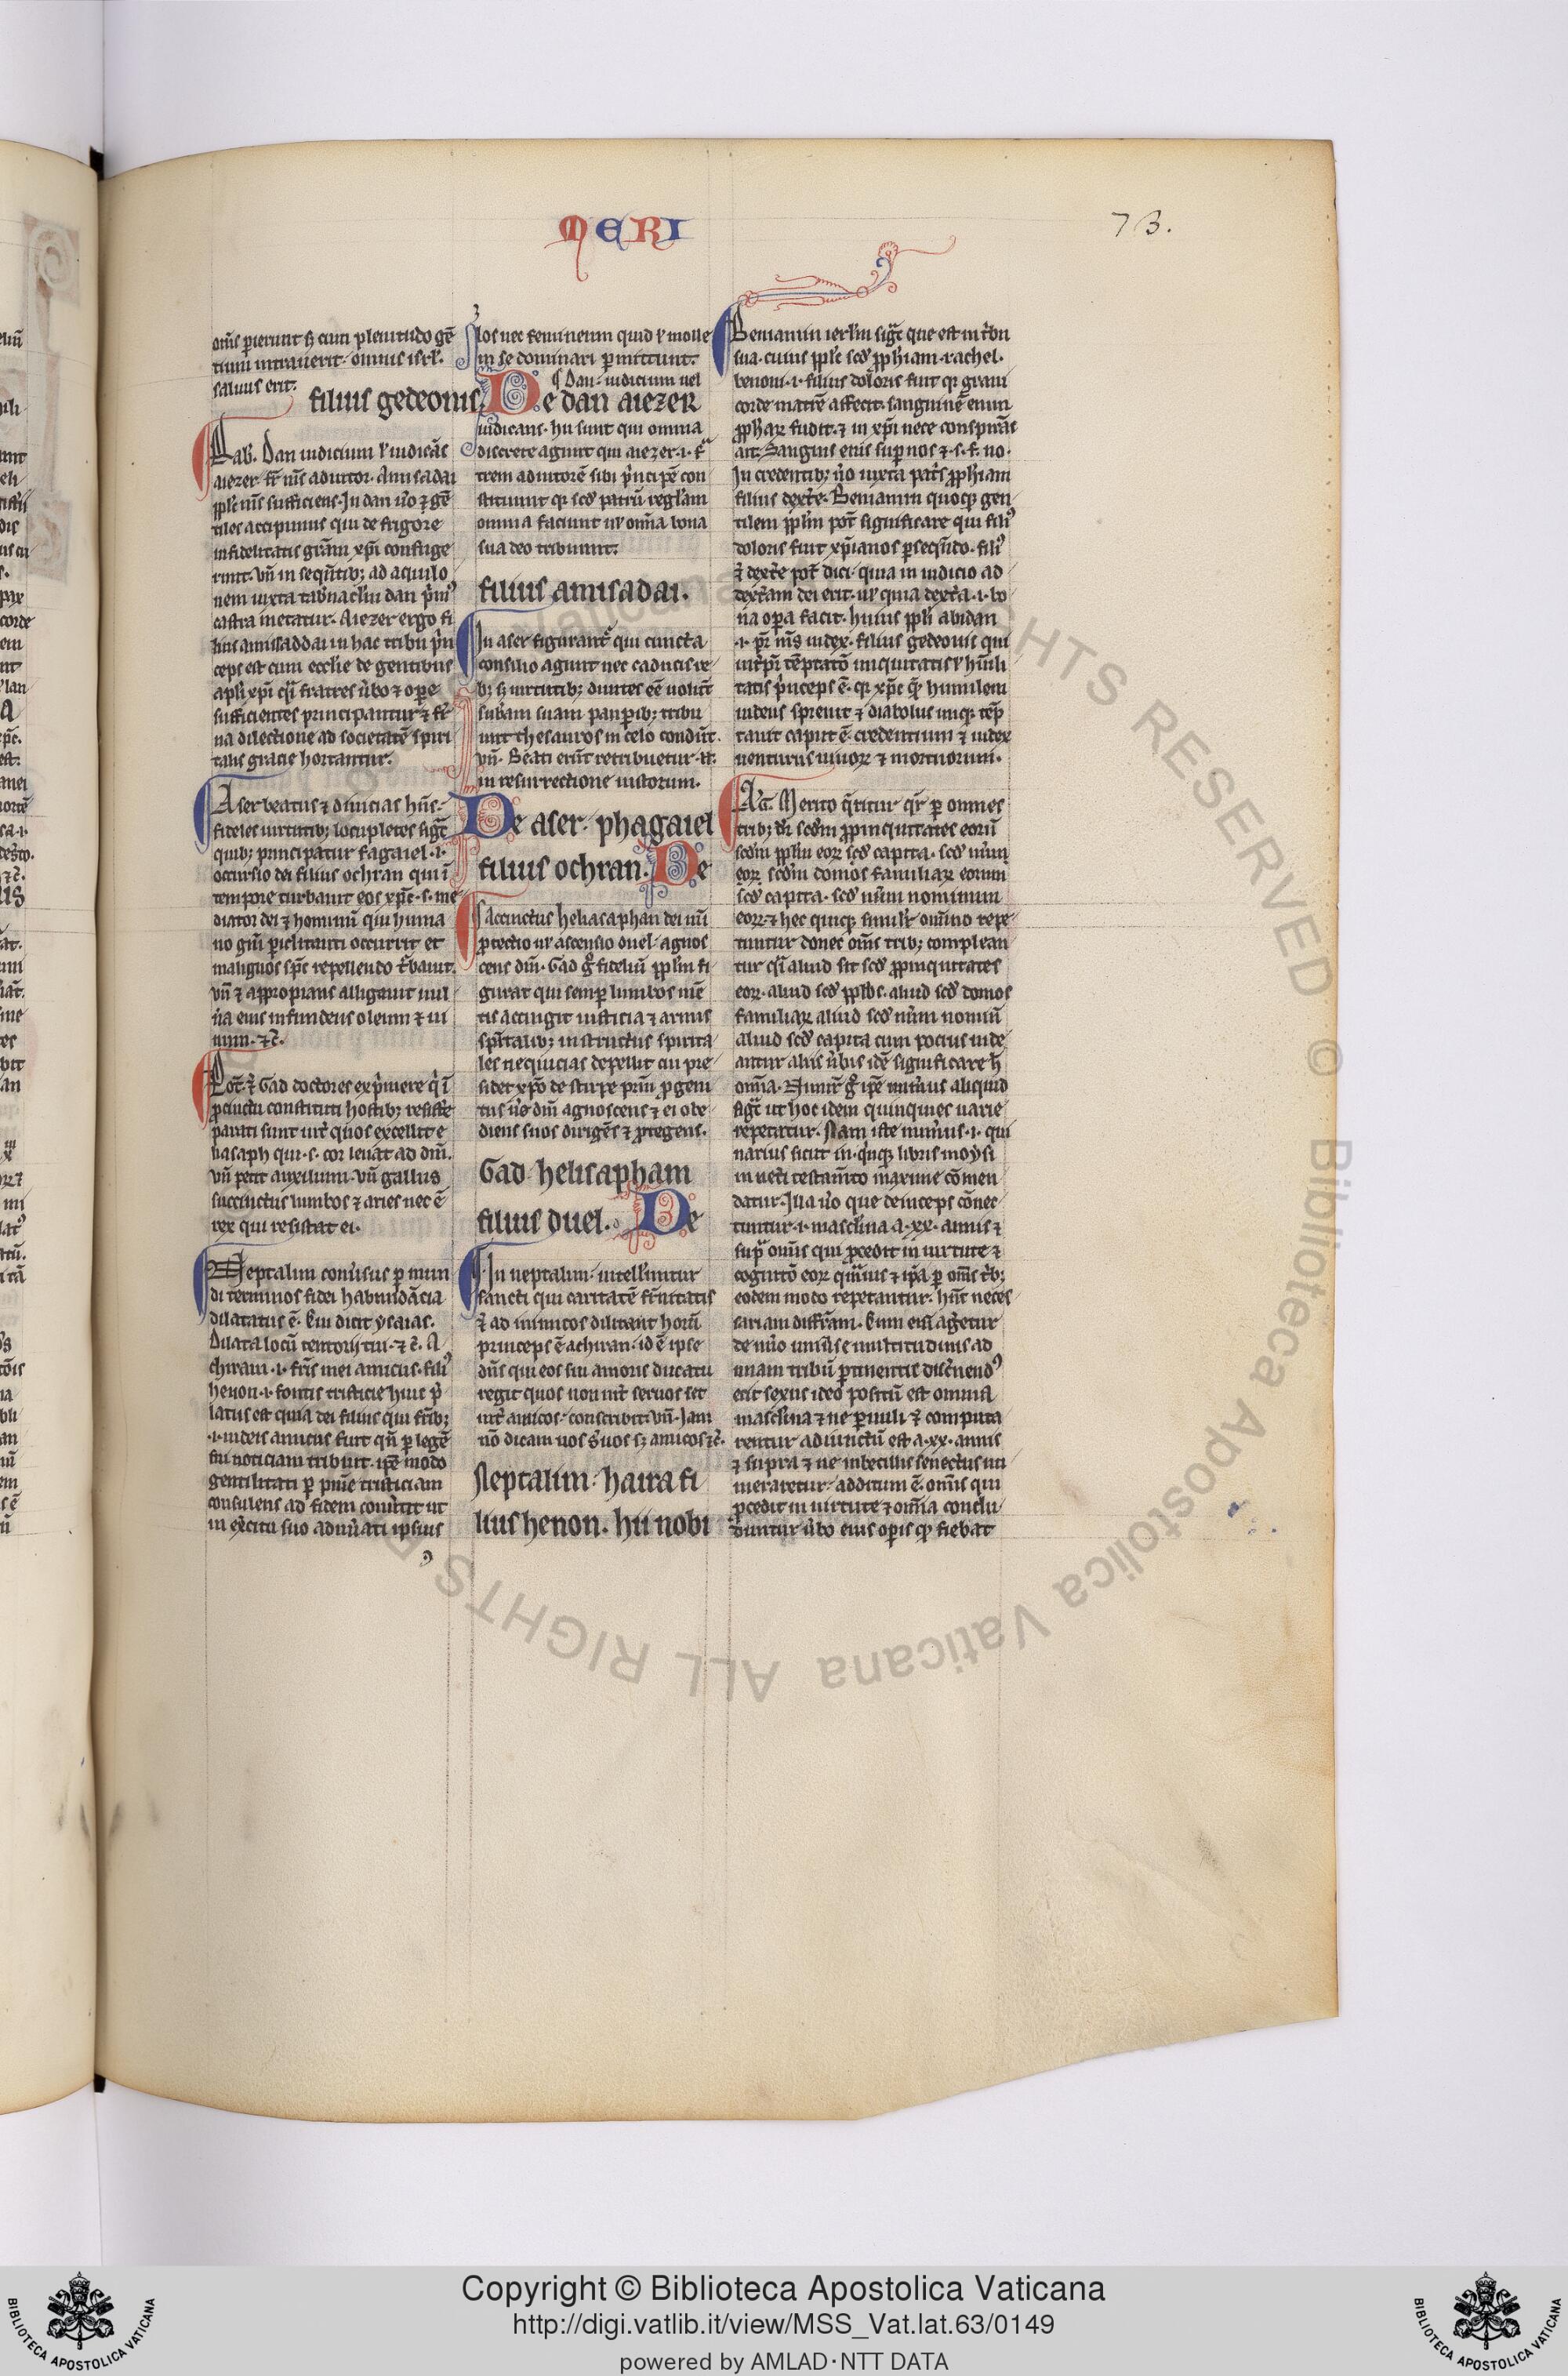 MERI
73.
om̄s perierunt s; cum plenitudo gē
tium intrauerit. omnis isrl̓.
saluus erit.
filius gedeonis.
Rab. Dan iudicium l̓ iudicās
aiezer fr̄ m̄s adiutor. Amisadai
ppl̓s m̄s sufficiens. In dan ūo ⁊ gē
tiles accipimus qui de frigore
infidelitatis gr̄am xp̄i confuge
runt. vn̄ in seqn̄tib; ad aquilo
nem iuxta tab̓naclm̄ dan p̓mꝰ
castra metatur. Aiezer ergo fi
lius amisaddai in hac tribu p̓n
ceps est cum ecclie de gentibus
apl̓i xp̄i q̄i fratres ūbo ⁊ oꝑe
sufficientes principantur ⁊ fr̄
na dilectione ad societatē spiri
talis gracie hortantur.
Aser beatus ⁊ diuicias hn̄s
fideles uirtutib; locupletes sigt̄
quib; principatur fagaiel .i.
occursio dei filius ochran qui ī
tempore turbauit eos xp̄c .s. me
diator dei ⁊ hominū qui huma
no gn̄i ꝑiclitanti occurrit et
malignos sp̄c repellendo t̓bauit.
vn̄ ⁊ appropians alligauit uul
n̓a eius infundens oleum ⁊ ui
num. ⁊c̄.
Pot̄ ⁊ Gad doctores exp̓mere q̓ ī
ꝓcinctu constituti hostib; resiste
parati sunt int̓ quos excellit e
liasaph qui .s. cor leuat ad dm̄.
vn̄ petit auxilium. vn̄ gallus
succinctus lumbos ⁊ aries nec ē
rex qui resistat ei.
Neptalim conūsus ꝑ mun
di terminos fidei habundācia
dilatatus ē. Cui dicit ysaias.
Dilata locū tentorij tui. ⁊c̄. A
chiram .i. fr̄is mei amicus. filiꝰ
henon .i. fontis tristicie huic p̓
latus est quia dei filius qui fr̄ib;
.i. iudeis amicus fuit qn̄ ꝑ legē
sui noticiam tribuit. ip̄e modo
gentilitati ꝑ pn̄ie tristiciam
consulens ad fidem conūtit ut
in ex̓citu suo adunati ipsius
los nec femineum quid l̓ molle
in se dominari ꝑmittunt.
Dan. iudicium uel
De dan aiezer
iudicans. hii sunt qui omnia
discrete agunt qui aiezer .i. fr̄
trem adiutorē sibi p̓ncipē con
stituunt qꝛ scd̓ patrū regl̓am
omnia faciunt ul̓ om̄ia bona
sua deo tribuunt.
filius amisadai.
In aser figurant̓ qui cuncta
consilio agunt nec caducis re
b; s; uirtutib; diuites eē uolūt
sub̄am suam pauꝑib; tribu
unt thesauros in celo condūt.
vn̄. Beati erūt retribuetur .n.
in resurrectione iustorum.
De aser. phagaiel
filius ochran. De
Accinctus heliasaphan dei mi
ꝓtectio ul̓ ascensio duel. agnos
cens dm̄. Gad g̓ fideliū ppl̓m fi
gurat qui semꝑ lumbos mē
tis accingit iusticia ⁊ armis
sp̄italib; instructus spirita
les nequicias depellit cui pre
sidet xp̄o de stirpe p̓mi ꝓgeni
tus ūe dm̄ agnoscens ⁊ ei obe
diens suos dirigēs ⁊ ꝓtegens.
Gad helisapham
filius duel. De
In neptalim. intell̓untur
sancti qui caritatē fr̄nitatis
⁊ ad inimicos dilitant horū
princeps ē achiran. id ē ipse
dn̄s qui eos sui amoris ducatu
regit quos non int̓ seruos set
int̓ amicos. conscribit. vn̄. Iam
nō dicam uos s̓uos s; amicos ⁊c̄.
Neptalim. haira fi
lius henon. hii nobi
Beniamin ierl̓m sigt̄ que est in t̓bu
sua. cuius ppl̓s scd̓ ꝓph̓iam. rachel.
benoni .i. filius doloris fuit qꝛ graui
corde matrē affecit. sanguinē enim
ꝓph̓aꝝ fudit. ⁊ in xp̄i nece conspirās
ait. Sanguis eius suꝑ nos ⁊ .s. f. no.
In credentib; ūo iuxta pat̓s ꝓph̓iam
filius dext̓e. Beniamin quoqꝫ gen
tilem ppl̓m pot̄ significare qui filiꝰ
doloris fuit xp̄ianos ꝑseqn̄do. filiꝰ
⁊ dext̓e pot̄ dici. quia in iudicio ad
dext̓am dei erit. ul̓ quia dext̓a .i. bo
na oꝑa facit. huius ppl̓i abidan
.i. pr̄ m̄s iudex. filius gedeonis qui
int̓pi tēptatō iniquitatis l̓ hūili
tatis p̓nceps ē. qꝛ xp̄c q̄ humilem
iudeus spreuit ⁊ diabolus iniq; tēp
tauit caput ē. credentium ⁊ iudex
uenturus uiuoꝝ ⁊ mortuorum.
Ag̓. Merito q̄ritur qr̄ ꝑ omnes
trib; dr̄ scd̓m ꝓpinquitates eorū
scd̓m ppl̓m eoꝝ scd̓ capita. scd̓ nūm
eoꝝ scd̓m domos familiaꝝ eorum
scd̓ capita. scd̓ nūm nominum
eoꝝ. ⁊ hec quinqꝫ simil̓r om̄ino repe
tuntur donec om̄s trib; complean
tur q̄i aliud sit scd̓ ꝓpinquitates
eoꝝ. aliud scd̓ ppl̓os. aliud scd̓ domos
familiaꝝ aliud scd̓ nūm nomiū
aliud scd̓ capita cum pocius uide
antur aliis ūbis idē significare h̄
om̄ia. Numr̄ g̓ ip̄e nuūus aliquid
sigt̄ ut hoc idem quinquies uarie
repetatur. Nam iste nuūus .i. qui
narius sicut in. q̓nqꝫ libris moysi
in uet̓i testam̄to maxime cōmen
datur. Illa ūo que deinceps cōnec
tuntur .i. masclina a .xx. annis ⁊
supra om̄s qui ꝓcedit in uirtute ⁊
cognitō eoꝝ quāuis ⁊ ip̄a ꝑ om̄s t̓b;
eodem modo repetantur. hn̄t neces
sariam diffr̄iam. Cum eni agetur
de nūo uniūse multitudinis ad
unam tribū ꝑtinentis disc̓nendꝰ
erit sexus ideo positū est omnia
masclina ⁊ ne ꝑuuli ⁊ computa
rentur adiunctū est a .xx. annis
⁊ supra ⁊ ne inbecillis senectus nu
meraretur. additum ē. om̄is qui
ꝓcedit in uirtute ⁊ om̄ia conclu
duntur ūbo eius oꝑis qꝫ fiebat
Copyright © Biblioteca Apostolica Vaticana
http://digi.vatlib.it/view/MSS_Vat.lat.63/0149
powered by AMLAD·NTT DATA